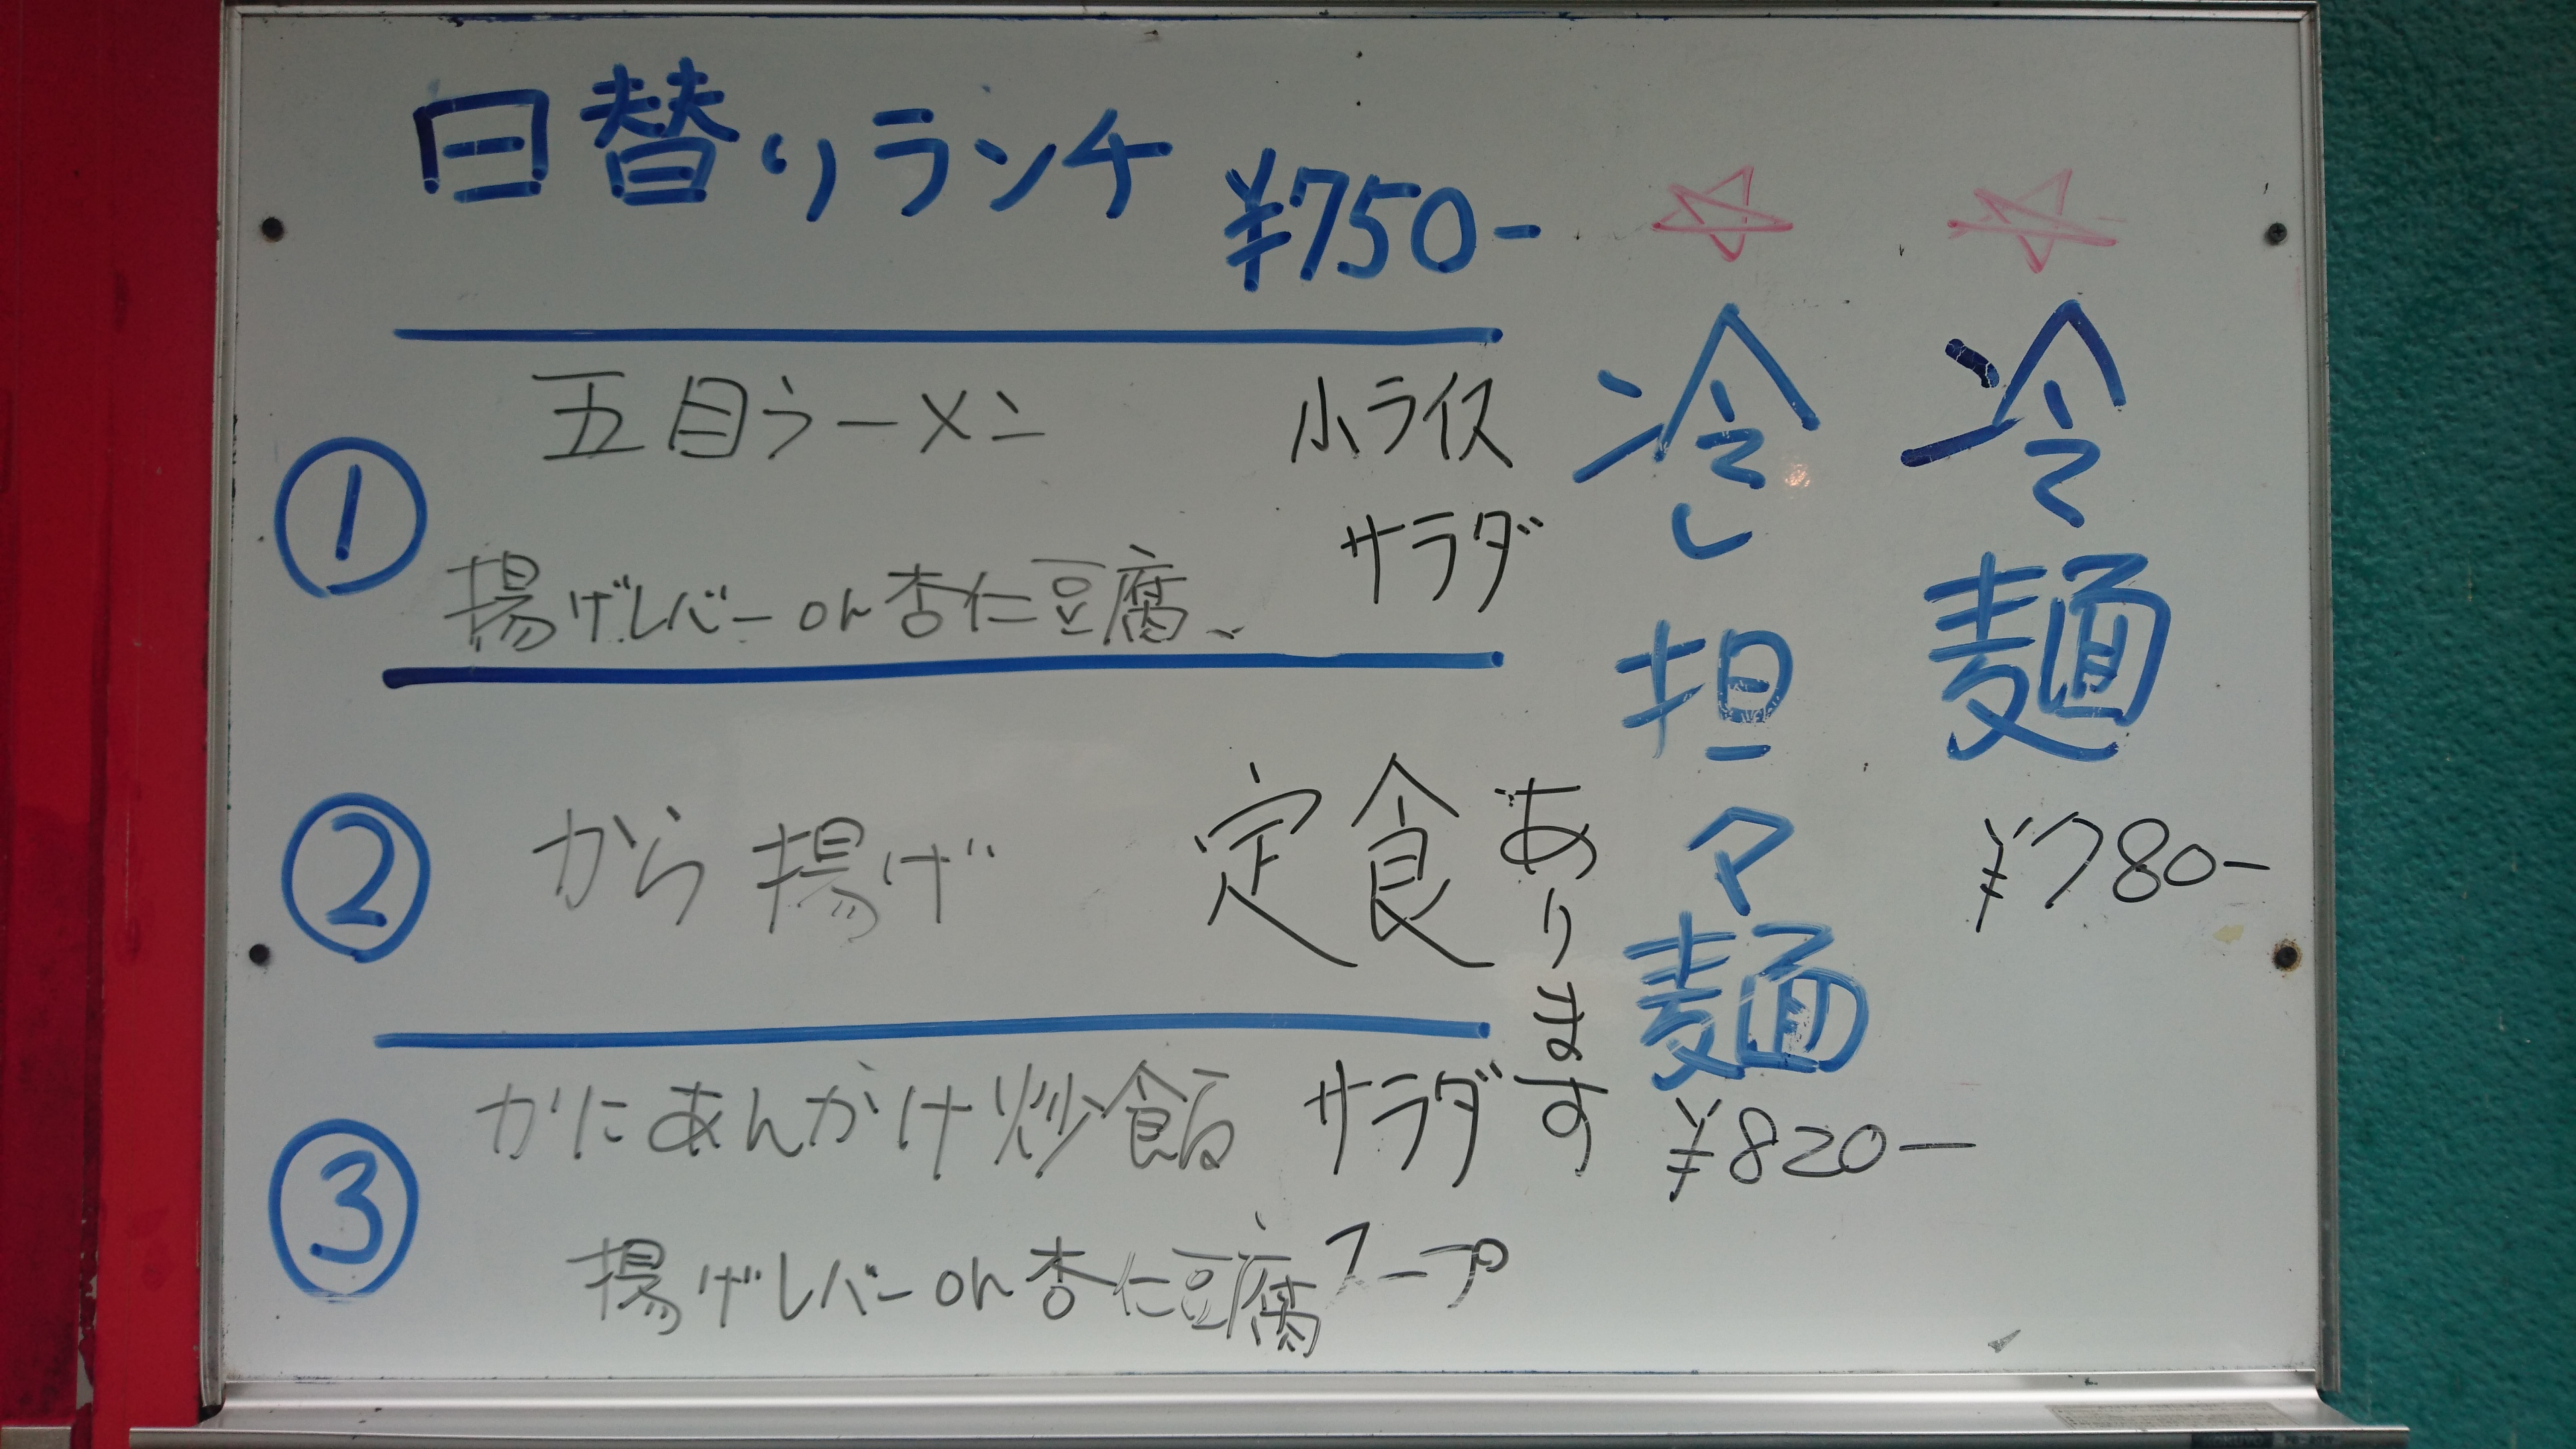 日替りランチ ¥750-
① 五目ラーメン 小ライス
サラダ
揚げレバー or 杏仁豆腐
② から揚げ 定食
③ かにあんかけ炒飯 サラダ
揚げレバー or 杏仁豆腐 スープ
あります
☆ 冷し担々麺
¥820-
☆ 冷麺
¥780-